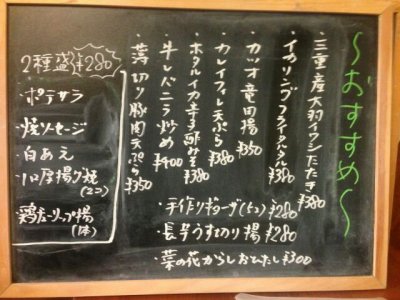 ～おすすめ～
・三重産大羽イワシたたき¥380
・イカリングフライタルタル¥380
・カツオ竜田揚¥350
・カレイフィレ天ぷら¥380
・ホタルイカ辛子酢みそ¥380
・牛レバニラ炒め¥400
・薄切り豚肉天ぷら¥350
・手作りギョーザ(5コ)¥280
・長芋うすぎり揚¥280
・菜の花からしおひたし¥300
2種盛¥280
・ポテサラ
・焼ソーセージ
・白あえ
・一口厚揚げ焼
(2コ)
・鶏チューリップ揚
(1本)